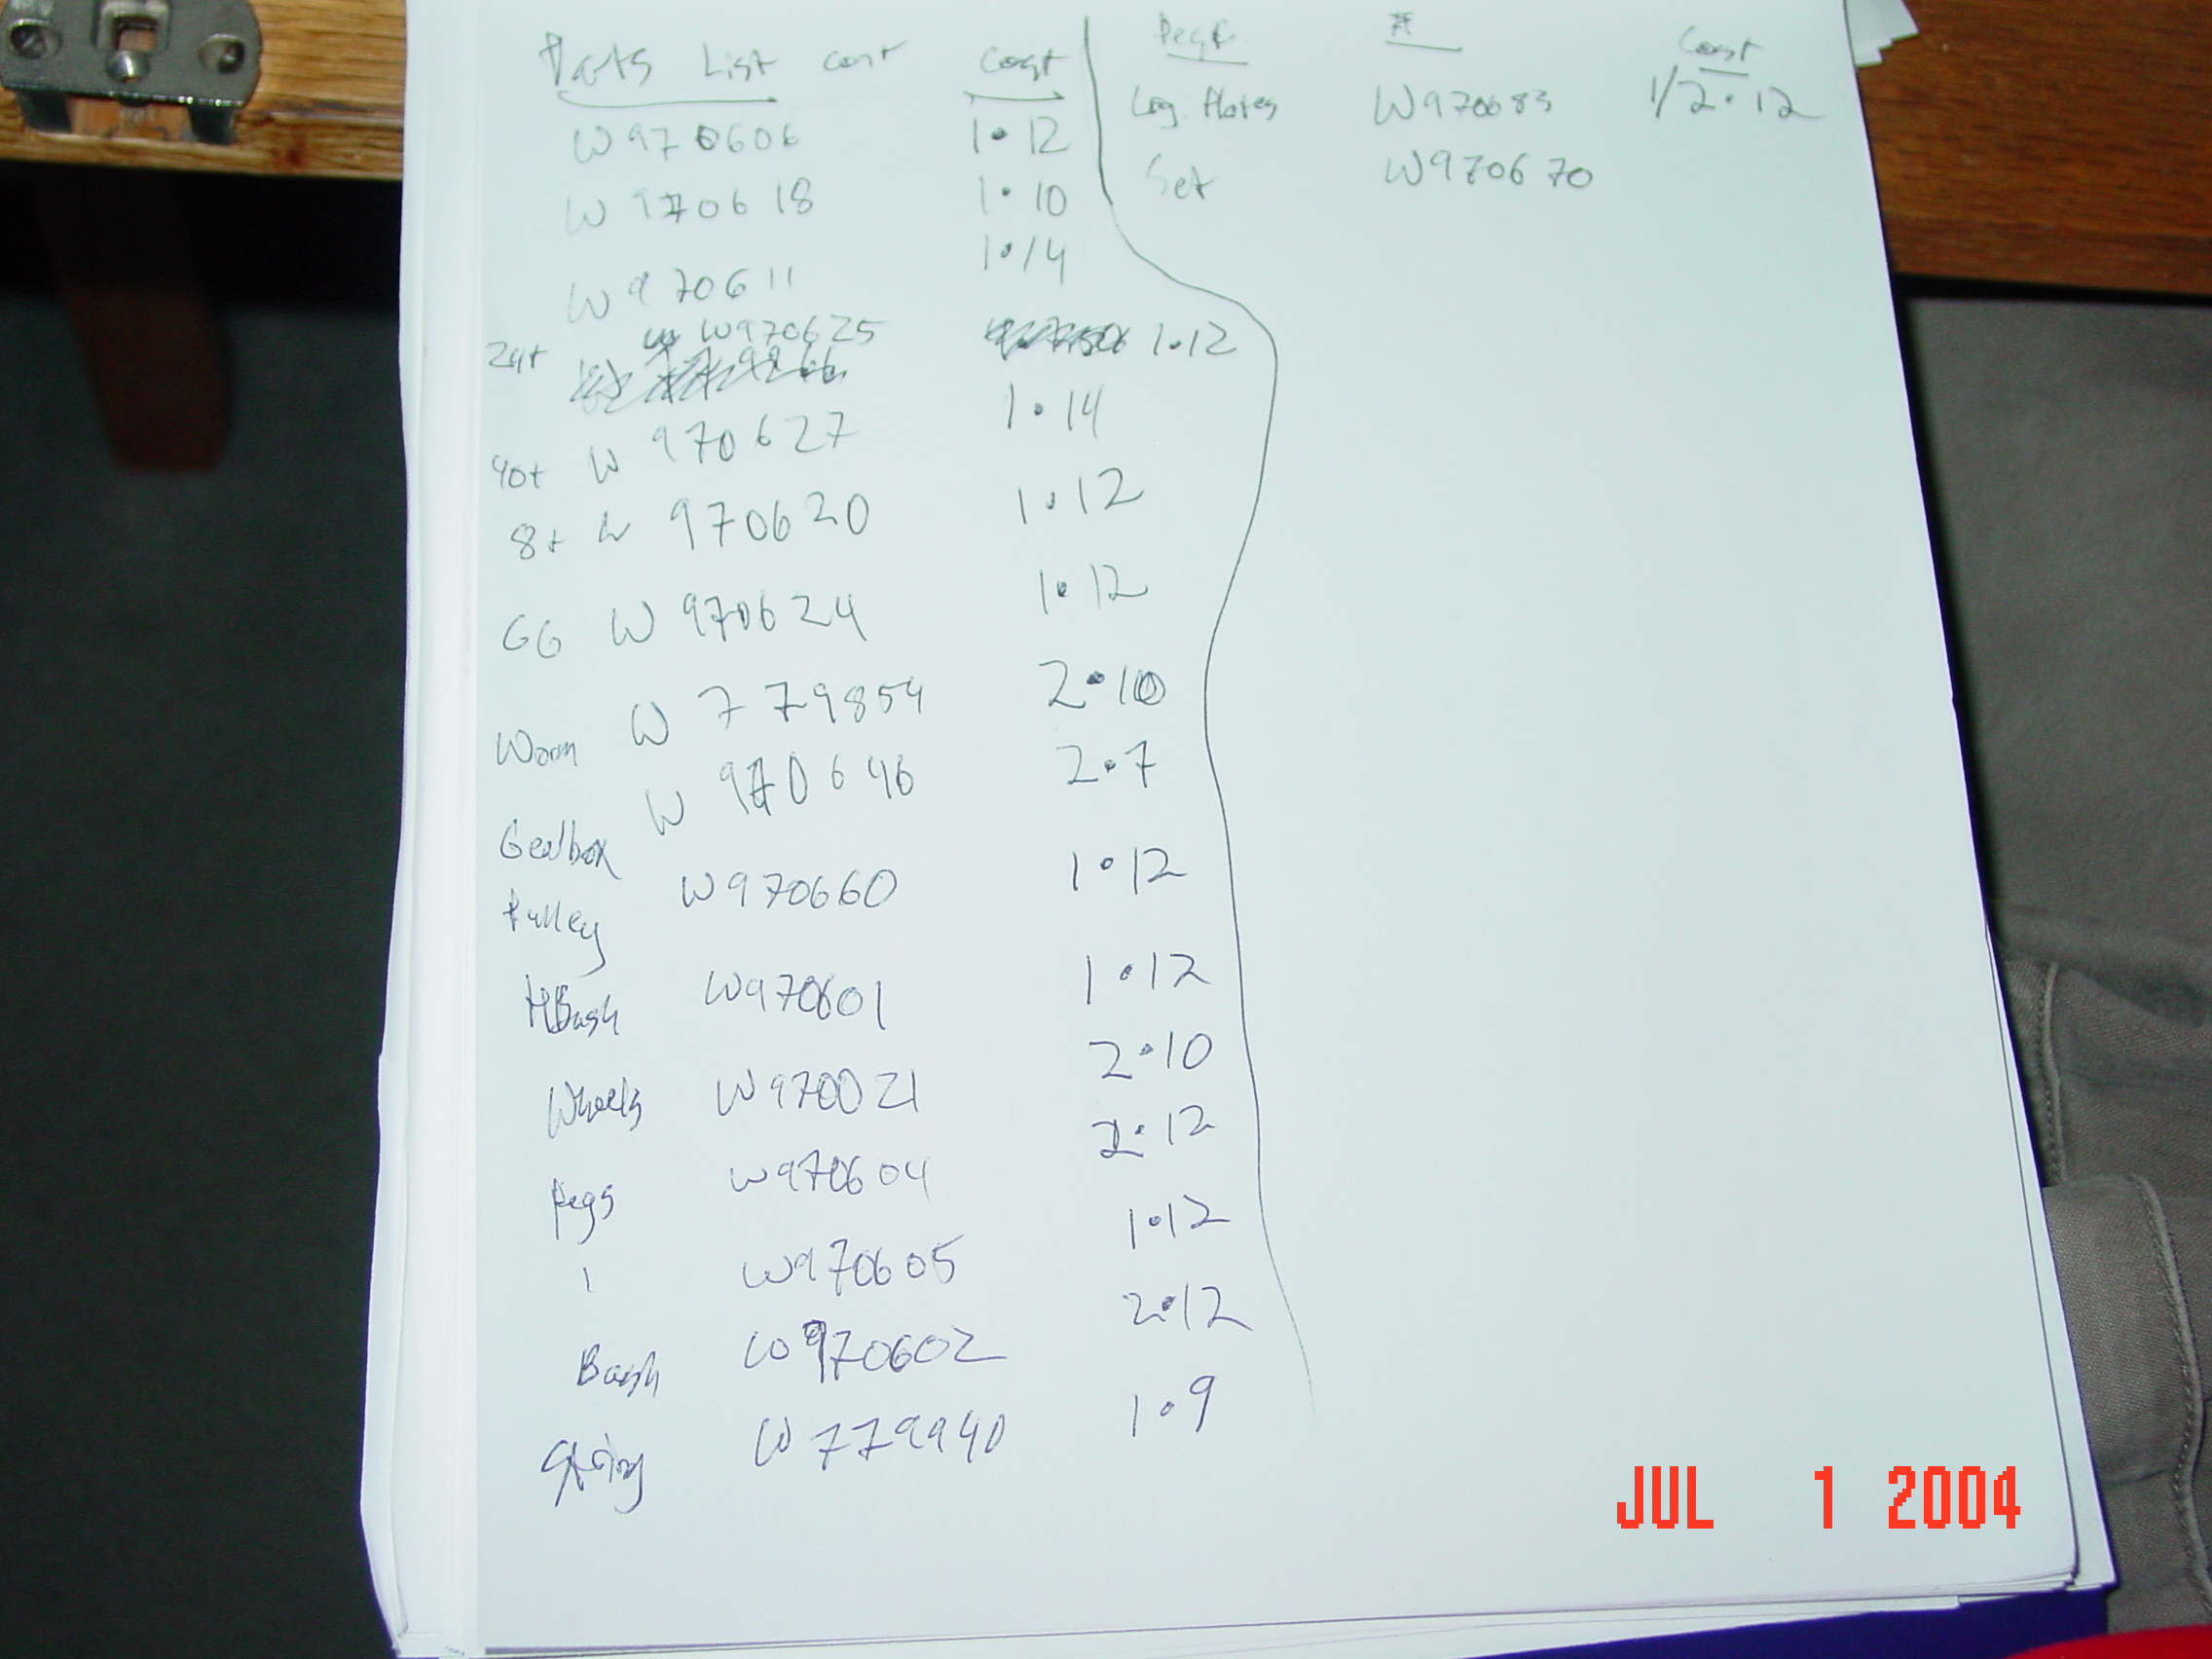 Parts List cost Cost
W970606 1.12
W970618 1.10
W970611 1.14
24t W970625 1.12
40t W970627 1.14
8t W970620 1.12
GG W970624 1.12
Worm W779854 2.10
Gearbox W970646 2.7
Pulley W970660 1.12
HBush W970601 1.12
Wheels W970021 2.10
Pegs W970604 2.12
W970605 1.12
Bush W970602 2.12
String W779940 1.9
# Cost
Leg Plates W970683 1/2.12
Set W970670
JUL 1 2004